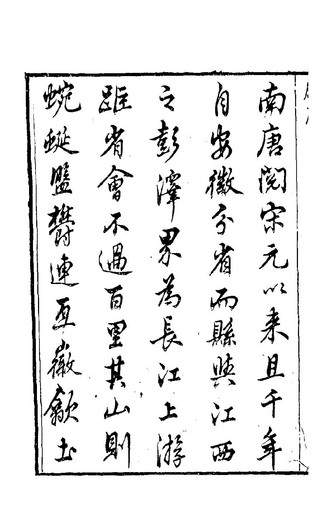 南唐閱宋元以來且千年
自安徽分省而縣與江西
之彭澤界為長江上游
距省會不過百里其山則
蜿蜒盤欝連亙嶶歙土